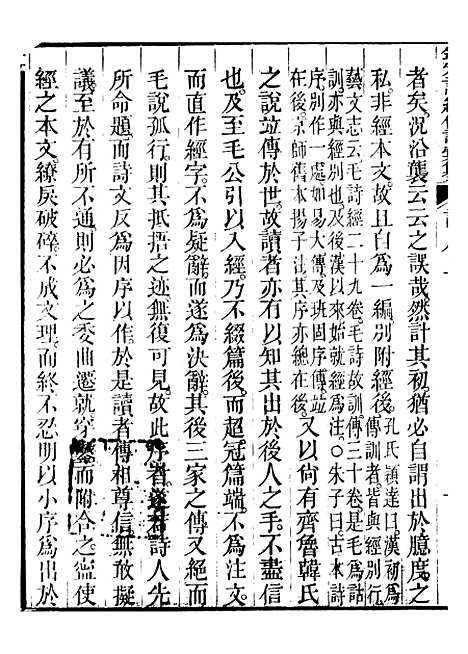 者矣。況沿襲云云之誤哉。然計其初猶必自謂出於臆度之
私。非經本文。故且自爲一編。別附經後。孔氏穎達曰漢初爲傳訓者皆與經別行
藝文志云毛詩經二十九卷。毛詩故訓傳三十卷。是毛爲詁
訓。亦與經別也。及後漢以來始就經爲注。○朱子曰古本詩
序別作一處。如易大傳及班固序傳。並
在後。京師舊本揚子法言其序亦總在後。又以尙有齊魯韓氏
之說竝傳於世。故讀者亦有以知其出於後人之手。不盡信
也。及至毛公引以入經。乃不綴篇後。而超冠篇端。不爲注文。
而直作經字。不爲疑辭。而遂爲決辭。其後三家之傳又絕。而
毛說孤行。則其抵捂之迹。無復可見。故此序者遂若詩人先
所命題。而詩文反爲因序以作。於是讀者傳相尊信。無敢擬
議。至於有所不通。則必爲之委曲遷就。穿鑿而附合之。寧使
經之本文繚戾破碎。不成文理。而終不忍明以小序爲出於